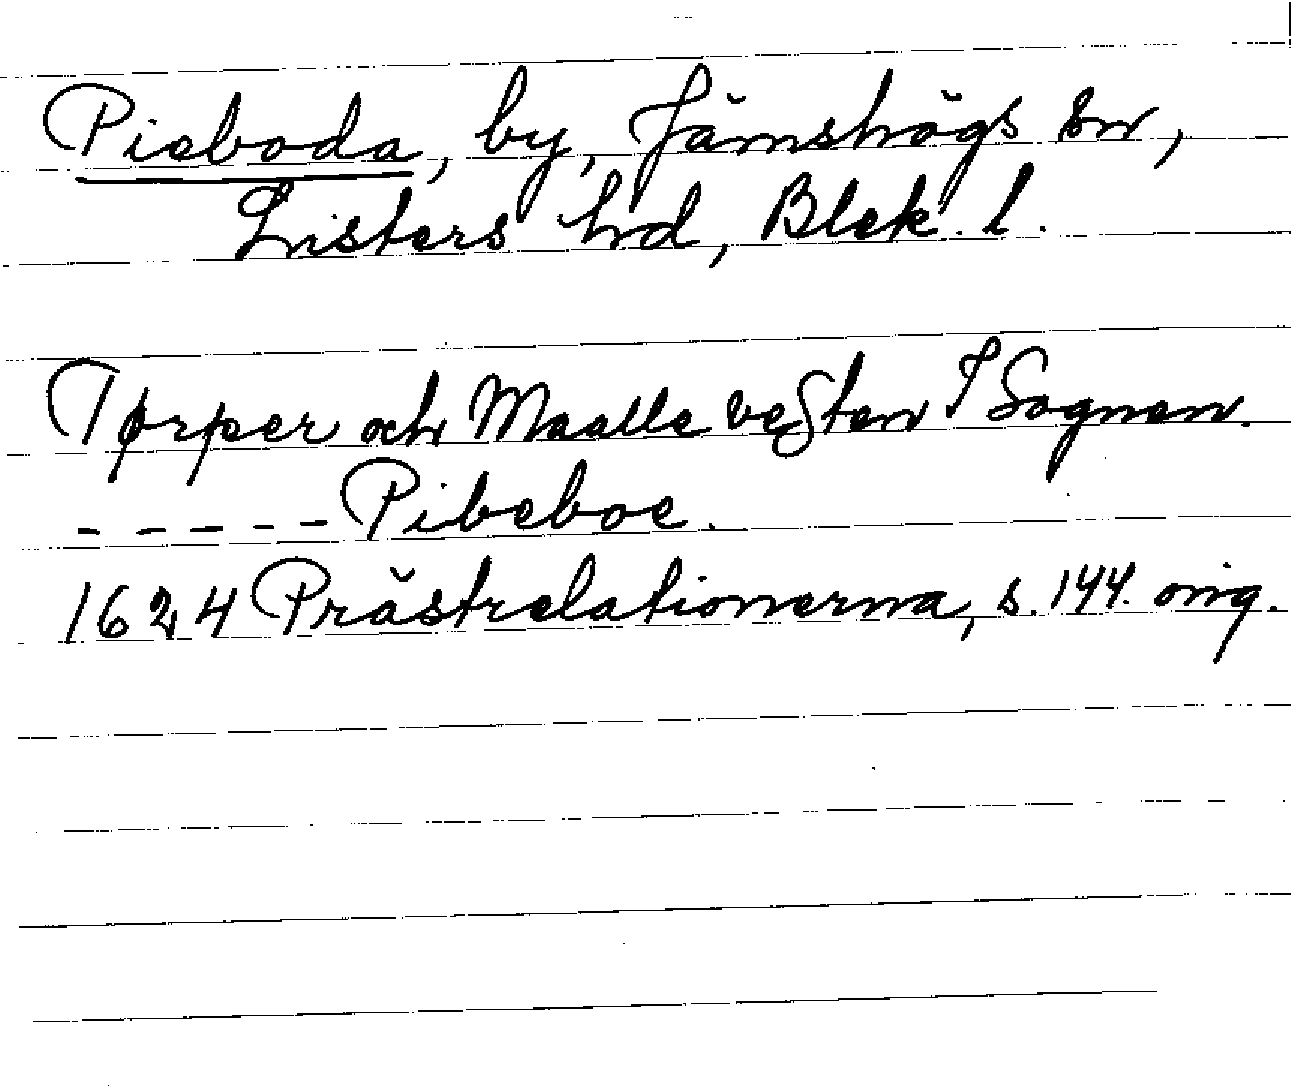 Pieboda, by, Jämshögs sn,
Listers hd, Blek. l.
Tørper och Maalle vesten I Sognen.
- - - - - Pibeboe.
1624 Prästrelationerna, s. 144. orig.